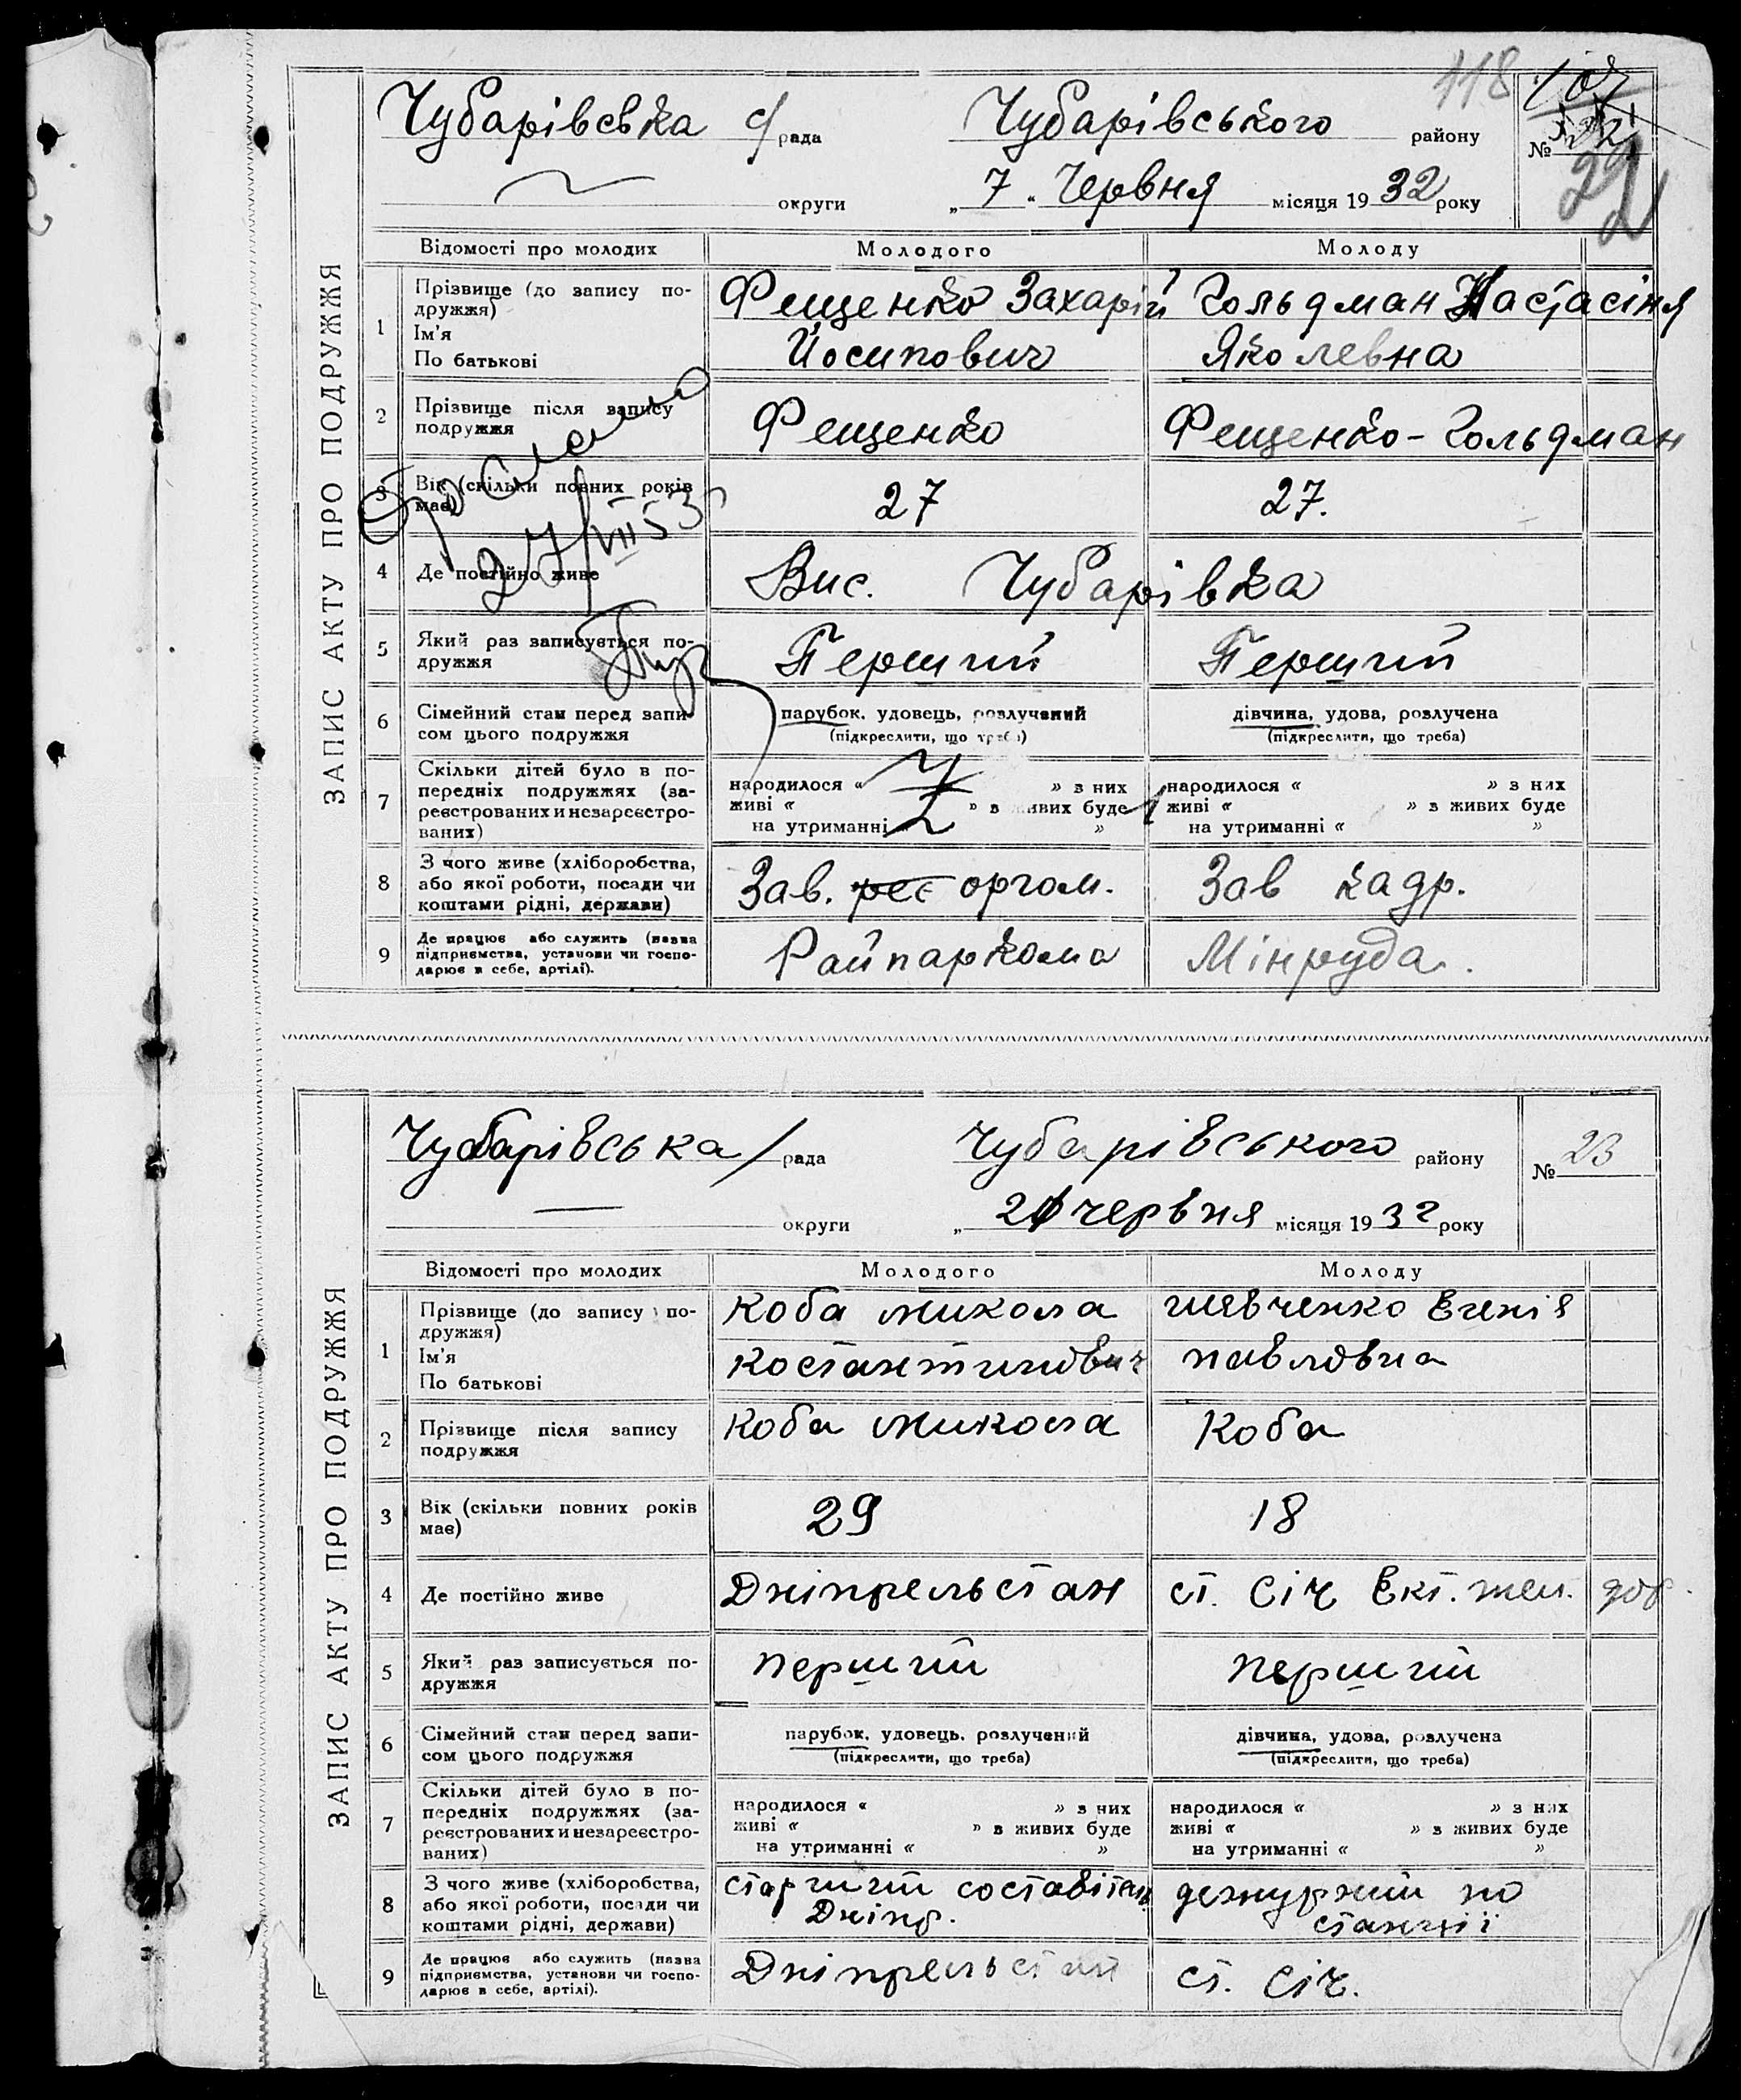 118
Чубарівська с/рада Чубарівського району № 22
округи „ 7 “ Червня місяця 1932 року
22
ЗАПИС АКТУ ПРО ПОДРУЖЖЯ
Відомості про молодих Молодого Молоду
1 Прізвище (до запису по-
дружжя)
Ім'я
По батькові
Фещенко Захарій Гольдман Настасіня
Йосипович Яколевна
2 Прізвище після запису
подружжя
Фещенко Фещенко-Гольдман
3 Вік (скільки повних років
має)
27 27.
27/VII 53
4 Де постійно живе Вис. Чубарівка
5 Який раз записується по-
дружжя
Перший Перший
6 Сімейний стан перед запи-
сом цього подружжя
парубок, удовець, розлучений дівчина, удова, розлучена
(підкреслити, що треба) (підкреслити, що треба)
7 Скільки дітей було в по-
передніх подружжях (за-
реєстрованих и незареєстро-
ваних)
народилося « » з них народилося « » з них
живі « » в живих буде живі « » в живих буде
на утриманні « » на утриманні « »
8 З чого живе (хліборобства,
або якої роботи, посади чи
коштами рідні, держави)
Зав. рес оргом. Зав кадр.
9 Де працює або служить (назва
підприємства, установи чи госпо-
дарює в себе, артілі).
Райпаркома Мінруда.
Чубарівська/рада Чубарівського району № 23
округи „ 21 червня місяця 1932 року
ЗАПИС АКТУ ПРО ПОДРУЖЖЯ
Відомості про молодих Молодого Молоду
1 Прізвище (до запису по-
дружжя)
Ім'я
По батькові
Коба Микола Шевченко Євгенія
Костантинович Павловна
2 Прізвище після запису
подружжя
Коба Микола Коба
3 Вік (скільки повних років
має)
29 18
4 Де постійно живе Дніпрельстан ст. Січ Єкт. жел. дор.
5 Який раз записується по-
дружжя
перший перший
6 Сімейний стан перед запи-
сом цього подружжя
парубок, удовець, розлучений дівчина, удова, розлучена
(підкреслити, що треба) (підкреслити, що треба)
7 Скільки дітей було в по-
передніх подружжях (за-
реєстрованих и незареєстро-
ваних)
народилося « » з них народилося « » з них
живі « » в живих буде живі « » в живих буде
на утриманні « » на утриманні « »
8 З чого живе (хліборобства,
або якої роботи, посади чи
коштами рідні, держави)
старший составітель дежурний по
Дніпр. станції
9 Де працює або служить (назва
підприємства, установи чи госпо-
дарює в себе, артілі).
Дніпрельстан ст. Січ.